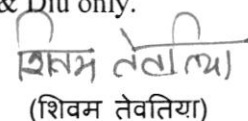 & Diu only.
शिवम तेवतिया
(शिवम तेवतिया)